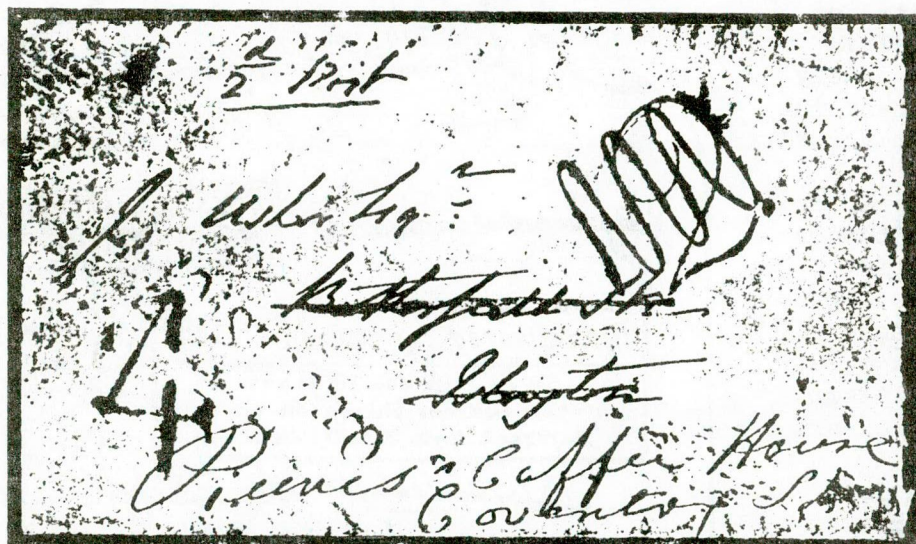 d
2 Post
J. Usher Esqr
Islington
4
Reeves's Coffee House
Coventry St